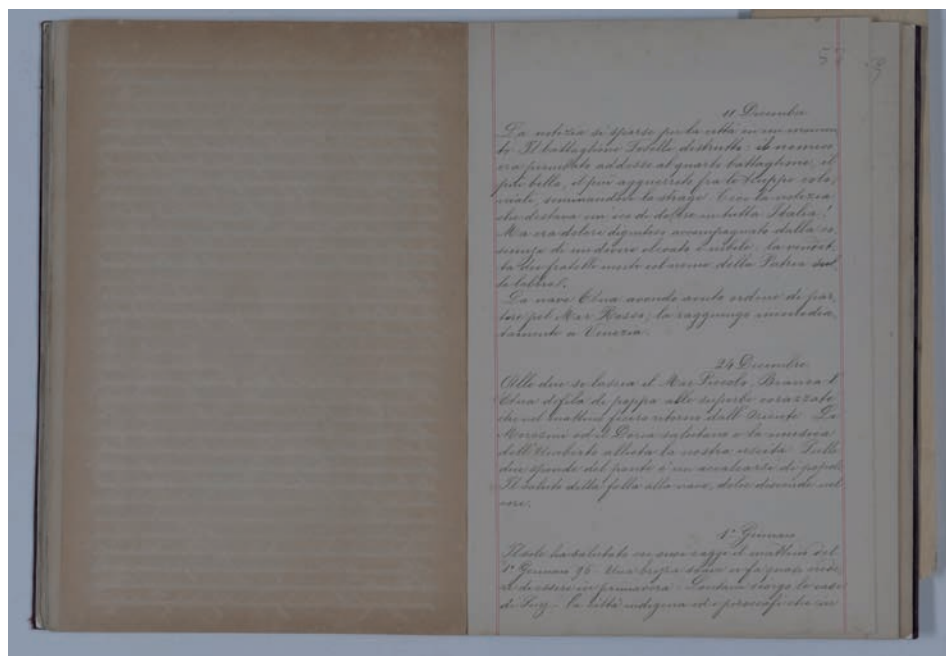 57
11 Dicembre
La notizia si sparse per la città in un momen
to. Il battaglione Toselli distrutto: il nemico
era piombato addosso al quarto battaglione, il
più bello, il più agguerrito fra le truppe colo,
niali, seminandovi la strage. Ecco la notizia
che destava un eco di dolore in tutta Italia!
Ma era dolore dignitoso accompagnato dalla co,
scienza di un dovere elevato e nobile: la vendet,
ta dei fratelli morti col nome della Patria sul
le labbra!.
La nave Etna avendo avuto ordine di par,
tire pel Mar Rosso, la raggiungo immedia,
tamente a Venezia.
24 Dicembre
Alle due si lascia il Mar Piccolo. Bianca l'
Etna defila di poppa alle superbe corazzate
che nel mattino fecero ritorno dall'Oriente. Il
Morosini ed il Doria salutano e la musica
dell'Umberto allieta la nostra uscita. Sulle
due sponde del ponte è un accalcarsi di popolo.
Il saluto della folla alla nave, dolce discende nel
core.
1° Gennaio
Il sole ha salutato coi suoi raggi il mattino del
1° Gennaio 96. Una brezza soave ci fa quasi
di essere in primavera. Lontano scorgo le case
di Suez - la città indigena ed i piroscafi che in